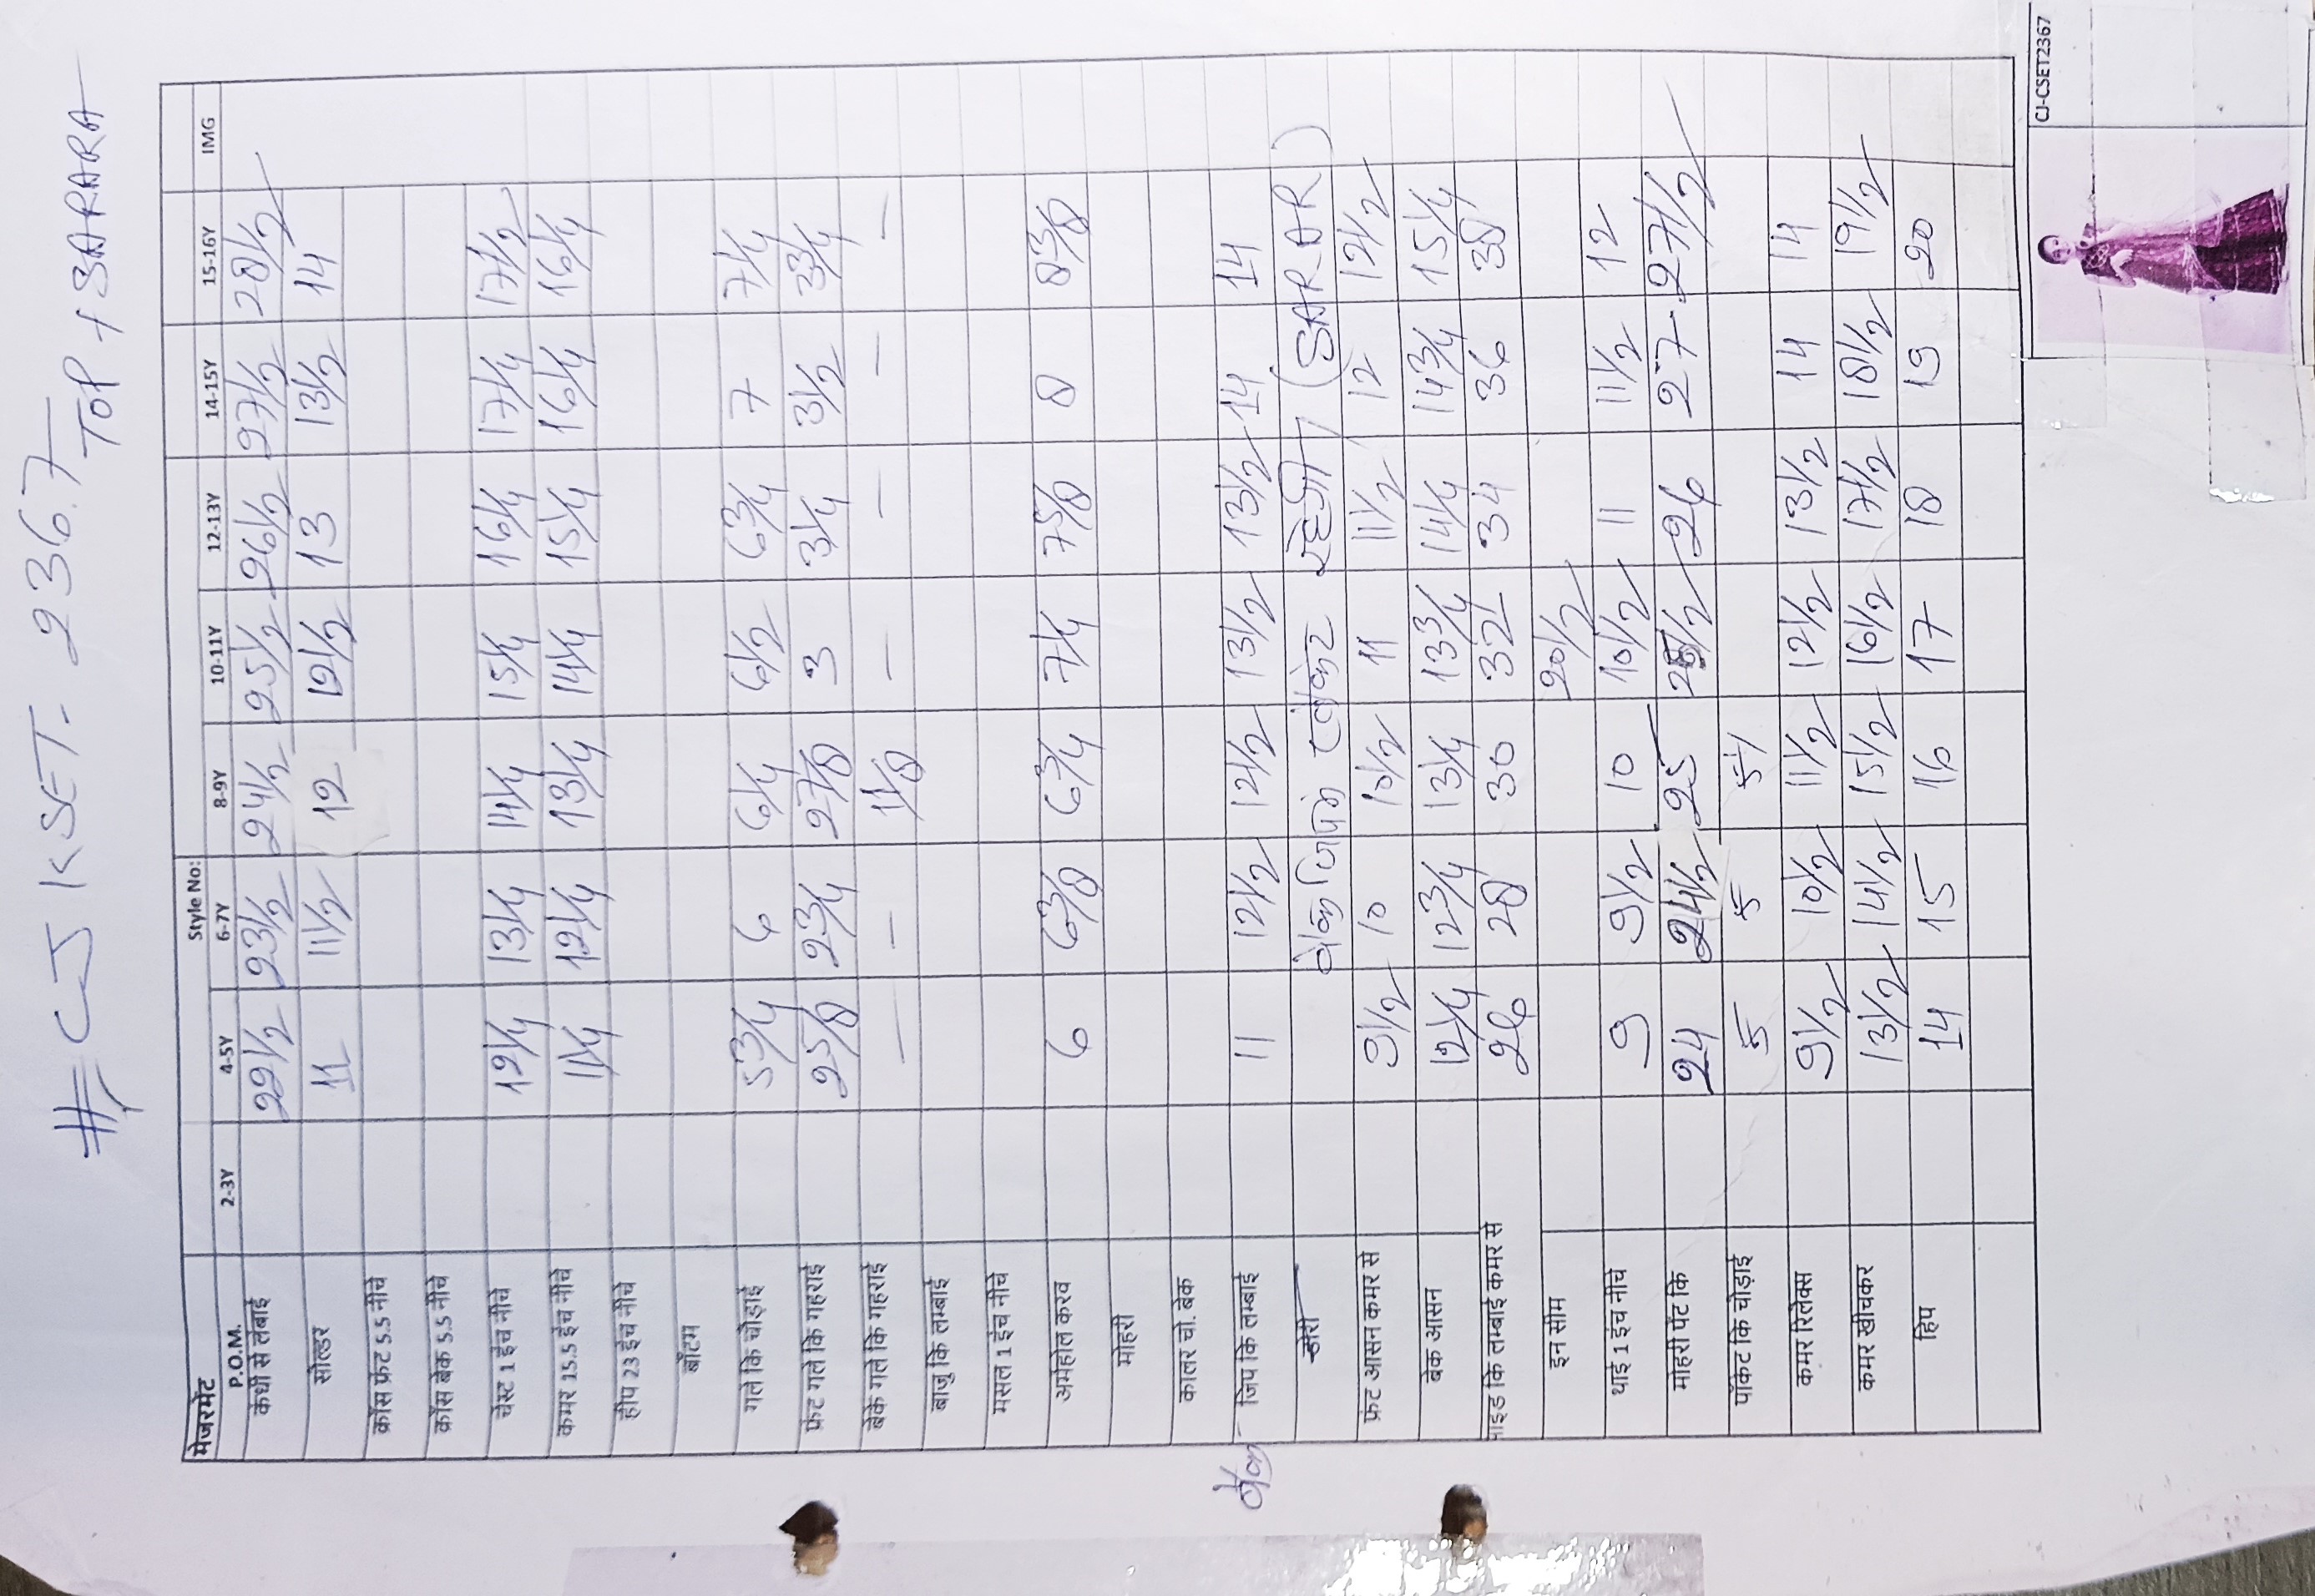 # CJ KSET- 2367
TOP + SARARA
मेजरमेंट Style No:
P.O.M. 2-3Y 4-5Y 6-7Y 8-9Y 10-11Y 12-13Y 14-15Y 15-16Y IMG
कंधी से लंबाई 22 1/2 23 1/2 24 1/2 25 1/2 26 1/2 27 1/2 28 1/2
सोल्डर 11 11 1/2 12 12 1/2 13 13 1/2 14
क्रॉस फ्रंट 5.5 नीचे
क्रॉस बेक 5.5 नीचे
चेस्ट 1 इंच नीचे 12 1/4 13 1/4 14 1/4 15 1/4 16 1/4 17 1/4 17 1/2
कमर 15.5 इंच नीचे 11 1/4 12 1/4 13 1/4 14 1/4 15 1/4 16 1/4 16 1/4
हीप 23 इंच नीचे
बॉटम
गले कि चौड़ाई 5 3/4 6 6 1/4 6 1/2 6 3/4 7 7 1/4
फ्रंट गले कि गहराई 2 5/8 2 3/4 2 7/8 3 3 1/4 3 1/2 3 3/4
बेक गले कि गहराई — — 1 1/8 — — — —
बाजु कि लम्बाई
मसल 1 इंच नीचे
अर्महोल करव 6 6 3/8 6 3/4 7 1/4 7 5/8 8 8 3/8
मोहरी
कालर चो. बेक
बेक जिप कि लम्बाई 11 12 1/2 12 1/2 13 1/2 13 1/2 14 14
डोरी बेक जिप में लोकेट रहेगी (SARAR)
फ्रंट आसन कमर से 9 1/2 10 10 1/2 11 11 1/2 12 12 1/2
बेक आसन 12 1/4 12 3/4 13 1/4 13 3/4 14 1/4 14 3/4 15 1/4
साइड कि लम्बाई कमर से 26 28 30 32 34 36 38
इन सीम 20 1/2
थाई 1 इंच नीचे 9 9 1/2 10 10 1/2 11 11 1/2 12
मोहरी पेंट कि 24 24 1/2 25 25 1/2 26 27 27 1/2
पॉकेट कि चोड़ाई 5 5
कमर रिलेक्स 9 1/2 10 1/2 11 1/2 12 1/2 13 1/2 14 14
कमर खीचकर 13 1/2 14 1/2 15 1/2 16 1/2 17 1/2 18 1/2 19 1/2
हिप 14 15 16 17 18 19 20
CJ-CSET2367